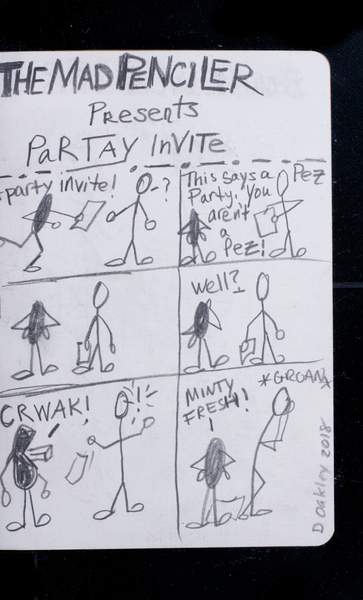 THE MAD PENCILER
Presents
PaRTAY InVITe
party invite!
?
This says a Pez
Party. You
aren't
a
Pez!
well?
CRWAK!
!
MINTY
FRESH!
*GROAN*
D Oakley 2018